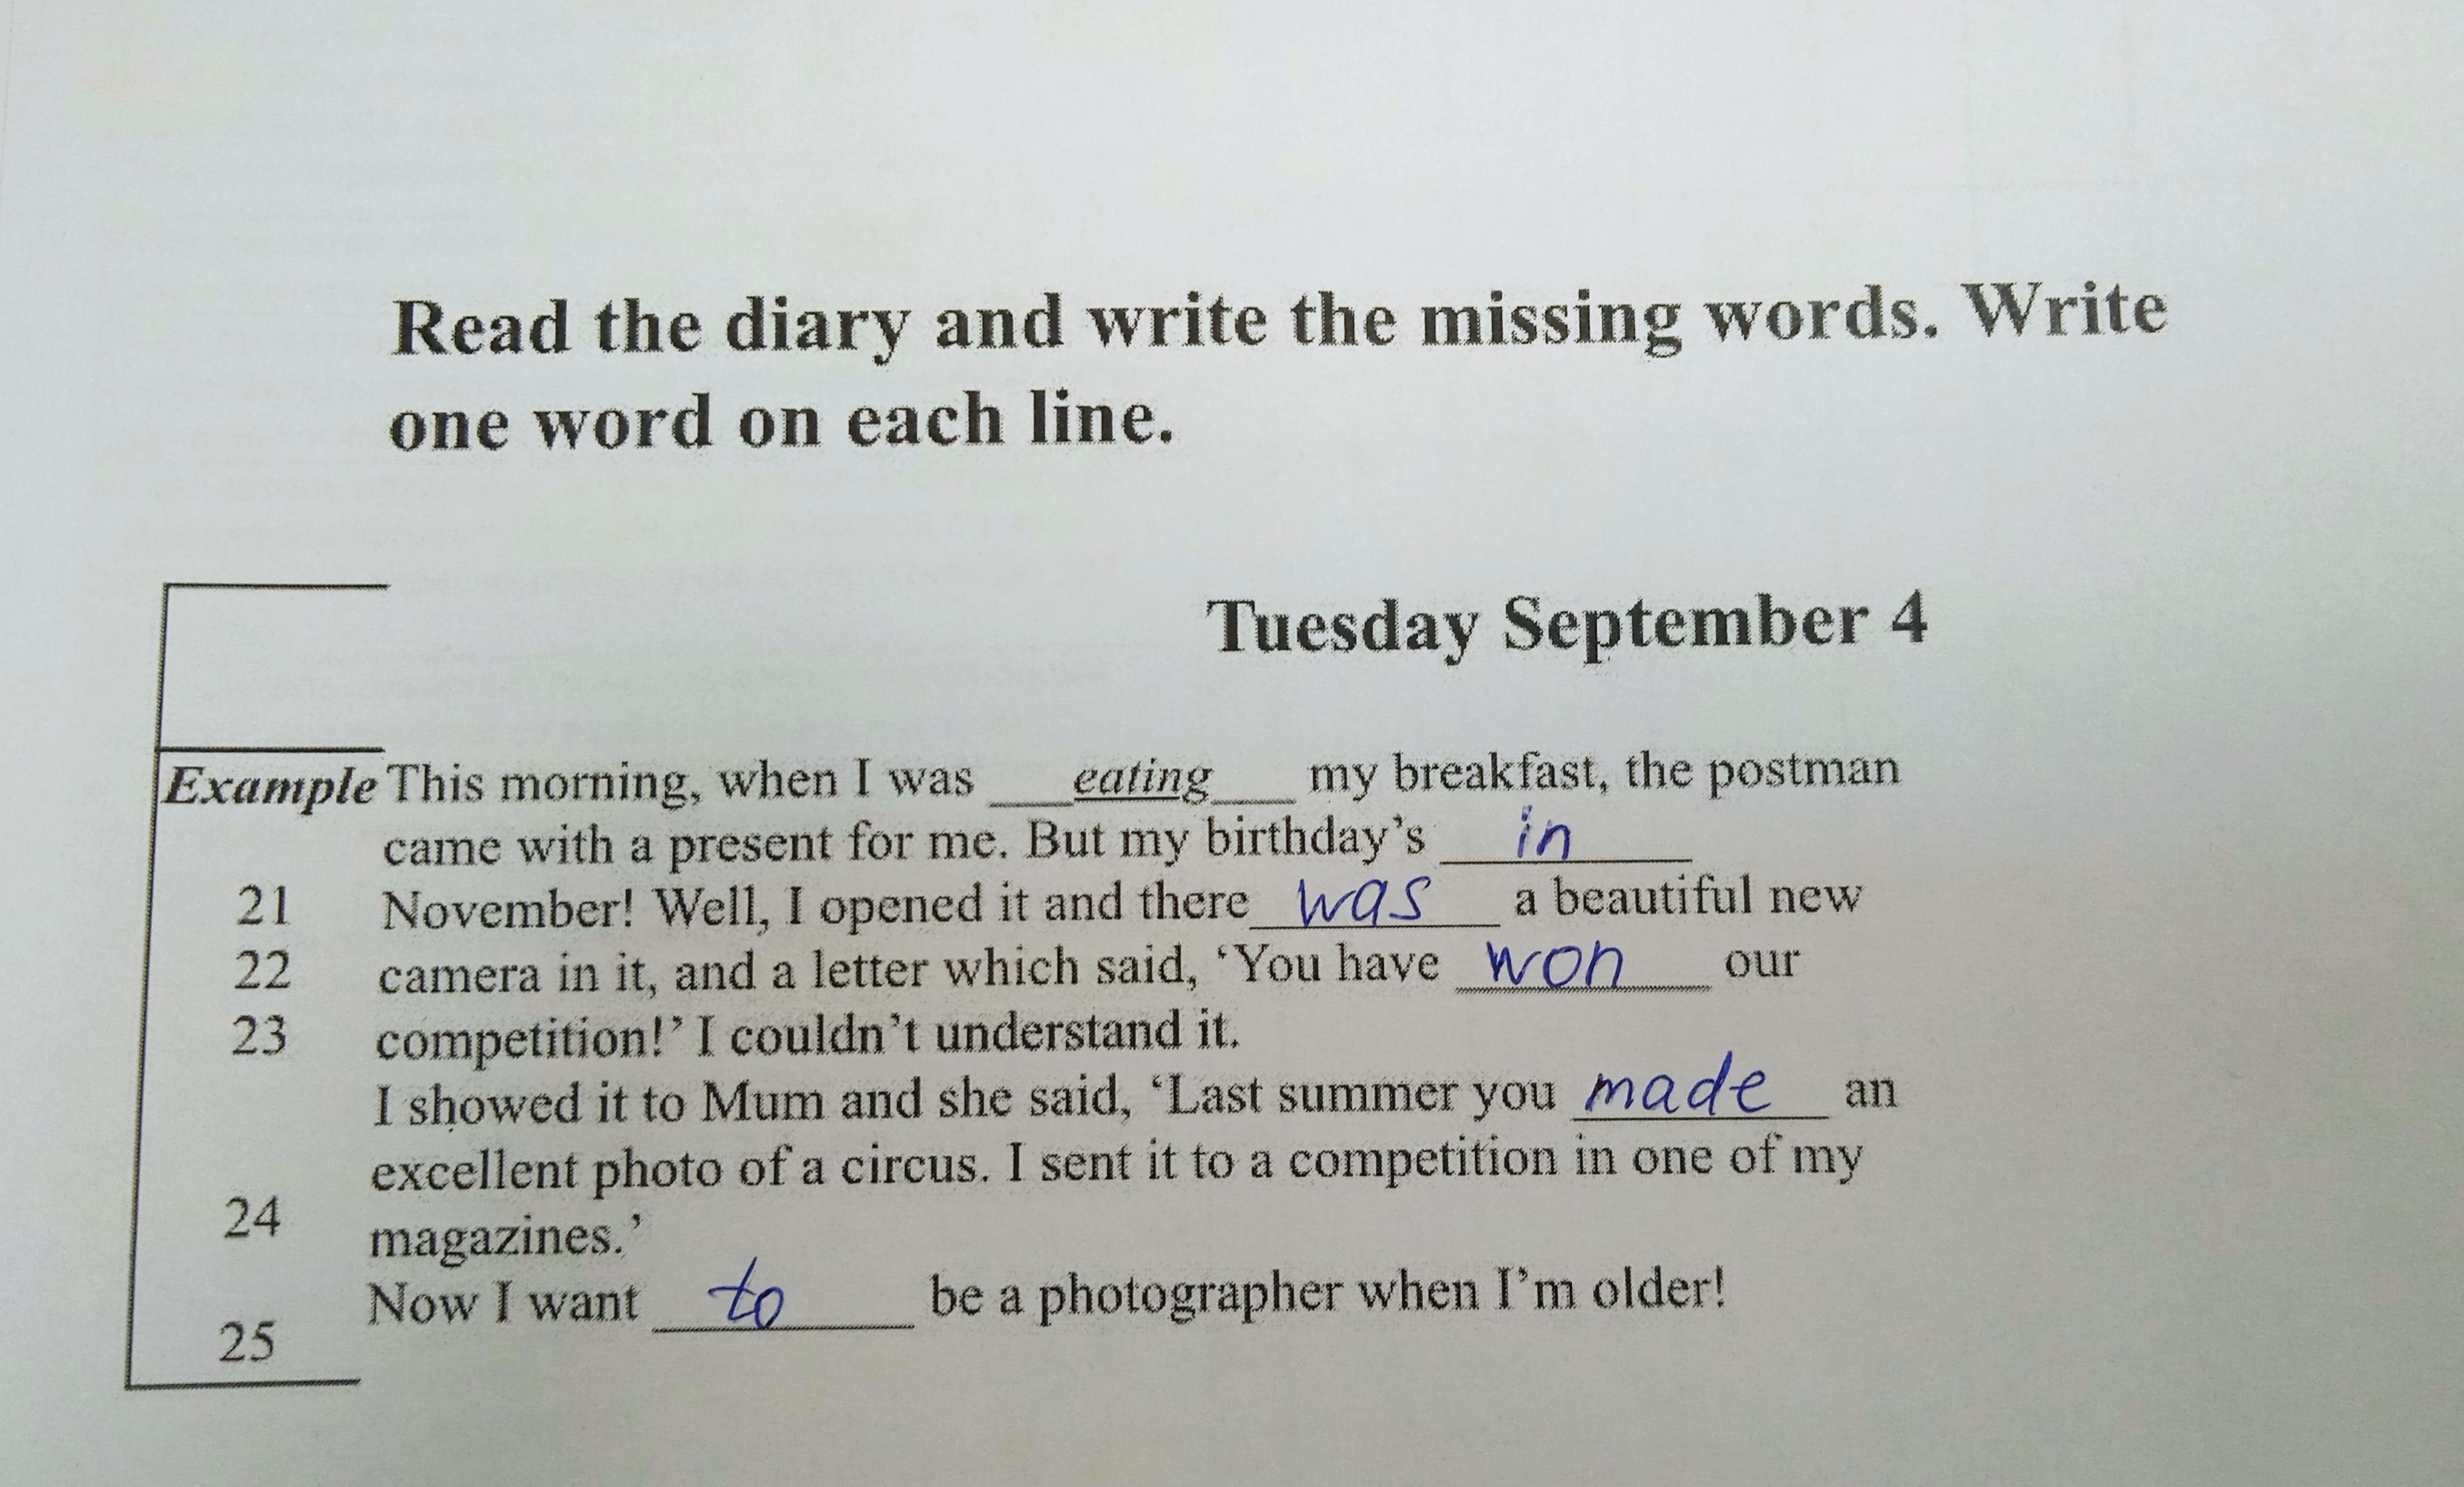 Read the diary and write the missing words. Write
one word on each line.
Tuesday September 4
Example This morning, when I was ___eating___ my breakfast, the postman
came with a present for me. But my birthday's in
21 November! Well, I opened it and there was a beautiful new
22 camera in it, and a letter which said, 'You have won our
23 competition!' I couldn't understand it.
I showed it to Mum and she said, 'Last summer you made an
excellent photo of a circus. I sent it to a competition in one of my
24 magazines.'
Now I want to be a photographer when I'm older!
25